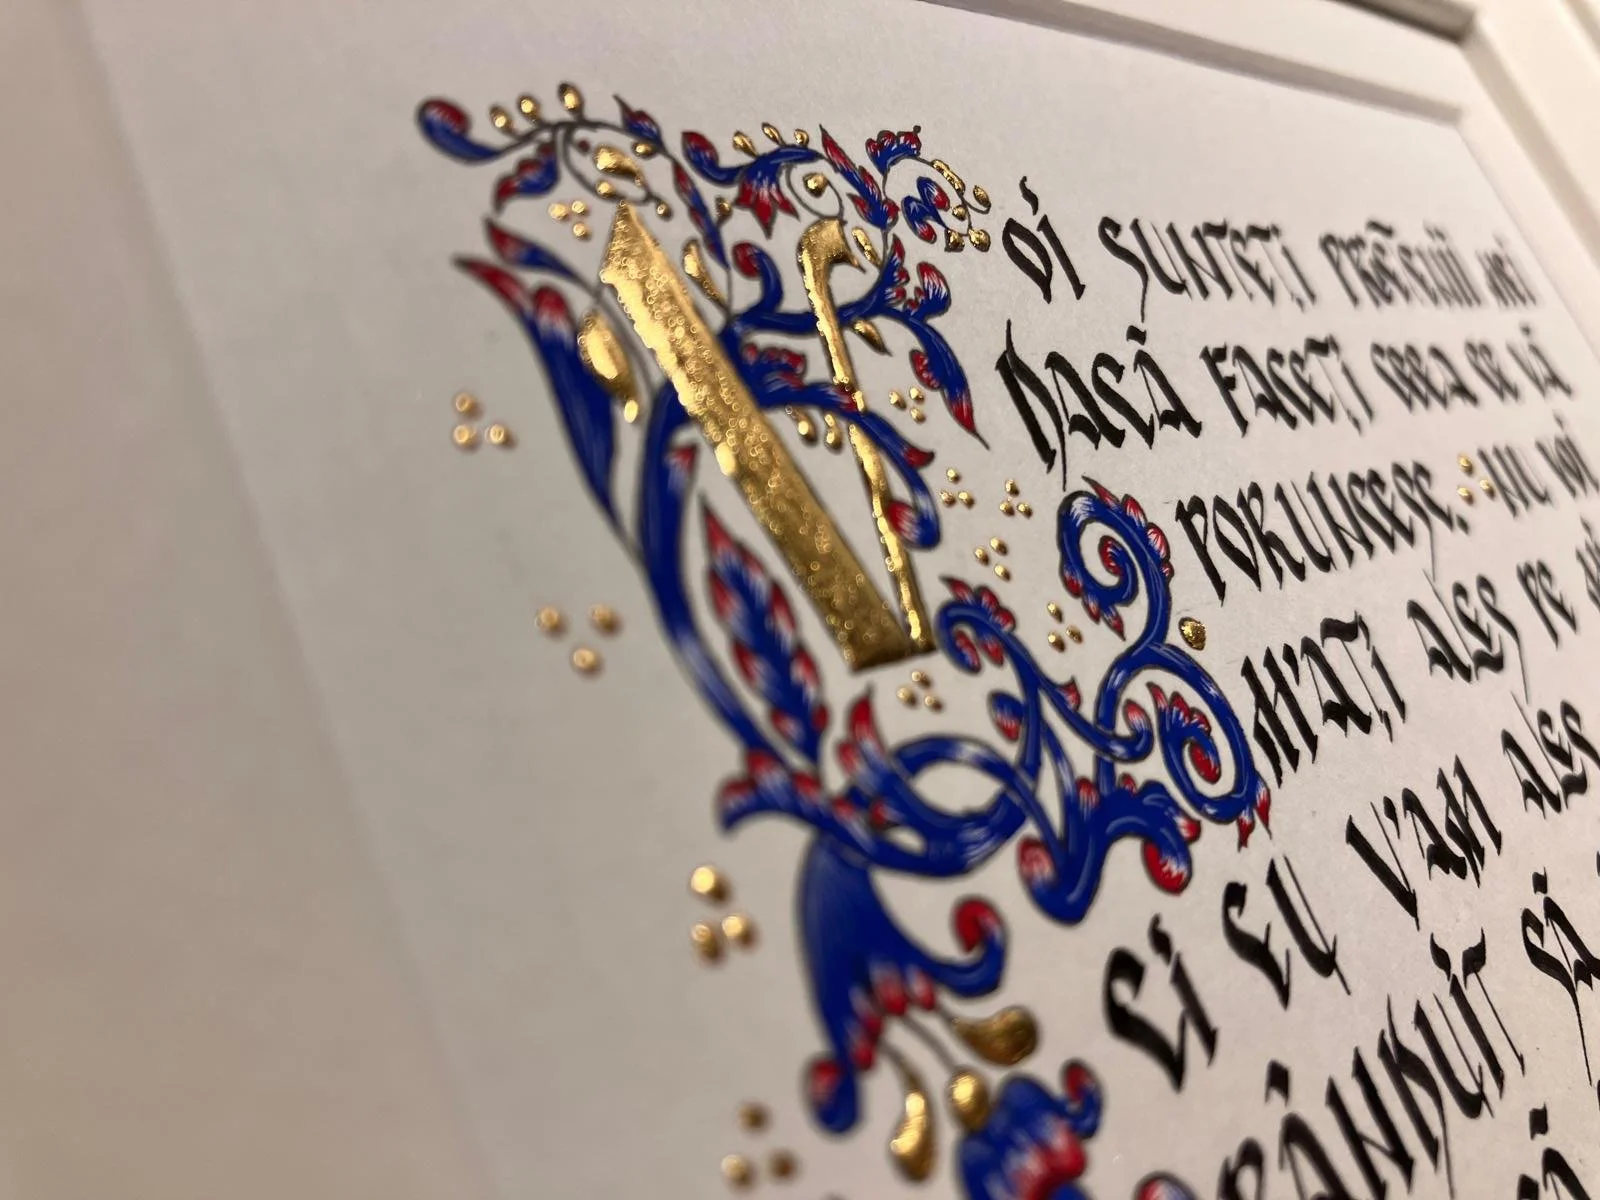 VOI SUNTEȚI PRIETENII MEI
DACĂ FACEȚI CEEA CE VĂ
PORUNCESC. NU VOI
M-AȚI ALES PE
CI EU V-AM ALES
RÂNDUIT CA